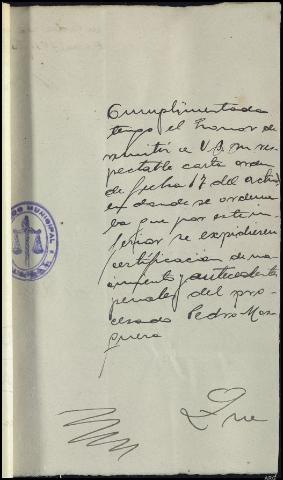 Cumplimentada
tengo el honor de
remitir a V.S. su res
petable carta orden
de fecha 17 del actual
en donde se ordena
ba que por este in
ferior se expidieren
certificación de na
cimiento y antecedentes
penales del pro
cesado Pedro Mos
quera
MUNICIPAL